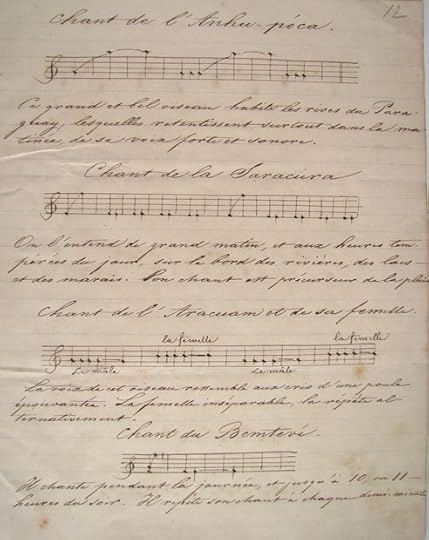 12
Chant de l'Anhu-póca.
Ce grand et bel oiseau habite les rives du Para-
guay, lesquelles retentissent surtout dans la ma-
tinée, de sa voix forte et sonore.
Chant de la Saracúra
On l'entend de grand matin, et aux heures tem-
pérées du jour, sur le bord des rivières, des lacs
et des marais. Son chant est précurseur de la pluie
Chant de l'Aracuam et de sa femelle.
la femelle la femelle
Le mâle Le mâle
La voix de cet oiseau ressemble aux cris d'une poule
épouvantée. La femelle inséparable, la répète al
ternativement.
Chant du Bemteví.
Il chante pendant la journée, et jusqu'à 10, ou 11
heures du soir. Il répète son chant à chaque demi-minute